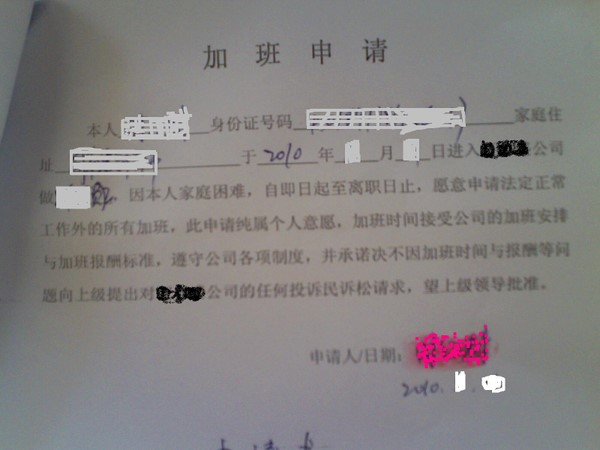 加班申请
本人 身份证号码 家庭住
址 于2010年 月 日进入 公司
做 因本人家庭困难，自即日起至离职日止，愿意申请法定正常
工作外的所有加班，此申请纯属个人意愿，加班时间接受公司的加班安排
与加班报酬标准，遵守公司各项制度，并承诺决不因加班时间与报酬等问
题向上级提出对 公司的任何投诉民诉松请求，望上级领导批准。
申请人/日期：
2010.